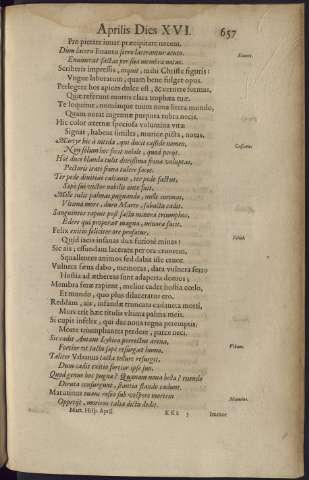 Aprilis Dies XVI. 657
Pro pietate iuuat præcipitare necem.
Dum lacero Euantu ferro lacerantur acuto.
Enumerat factas per sua membra notas.
Scriberis impressis, inquit, mihi Christe figuris:
Vngue laboratum, quam bene fulget opus.
Perlegere hos apices dulce est, & cernere formas,
Quæ referunt mortis clara trophæa tuæ.
Te loquitur, nomenque tuum noua littera mundo,
Quam notat ingenuus purpura rubra nocis.
Hic color æternæ speciosa volumina vitæ
Signat, habens similes, murice picta, notas.
Martyr hic à meda, qui ducit casside nomen,
Non solum hoc
Hoc duce blanda tulit dirissima frena voluptas,
Pectoris irati frena tulere faces.
Ter pede diuitias calcante, ter pede fastus,
Sapo sui victor nobilis ante fuit.
Mille tulit palmas pugnando, mille coronas,
Vltima mors, duro Marte, subacta cadit.
Sanguineos rapuit post fata nouena triumphos,
Edere qui properat magna, minora facit.
Felix exitio feliciter ore profatur,
Quid iacis insanas dux furiose minas?
Sic ais; effundam lacerans per ora cruorem,
Squallentes animos sed dabit iste cruor.
Vulnera sæua dabo, memoras, data vulnera ferro
Hostia ad æthereas sunt adaperta domus:
Membra senæ rapient, melior cadet hostia cœlo,
Et mundo, quo plus dilaceratur ero.
Reddam, ais, infandæ truncata cadauera morti,
Mors erit hæc titulis vltima palma meis.
Si cupis infelix, qui das noua regna peremptis:
Morte triumphantes perdere, parce neci.
Sic cadit Antæus Lybica porrectus arena,
Fortior vt tacta sæpe resurgat humo.
Taliter Vrbanus tacta tellure resurgit,
Dum cadit exitio fortior ipse suo.
Quod genus hoc pugnæ? Quænam noua lucta? ruendo
Diruta consurgunt, stantia stando cadunt.
Matutinus ouans roseo sub vespere mortem
Oppetijt, moriens talia dicta dedit.
Mart. Hisp. April. KKk 3 Inuisor
Euantu.
Cassianus.
Felix.
Vrbanus.
Matutin.